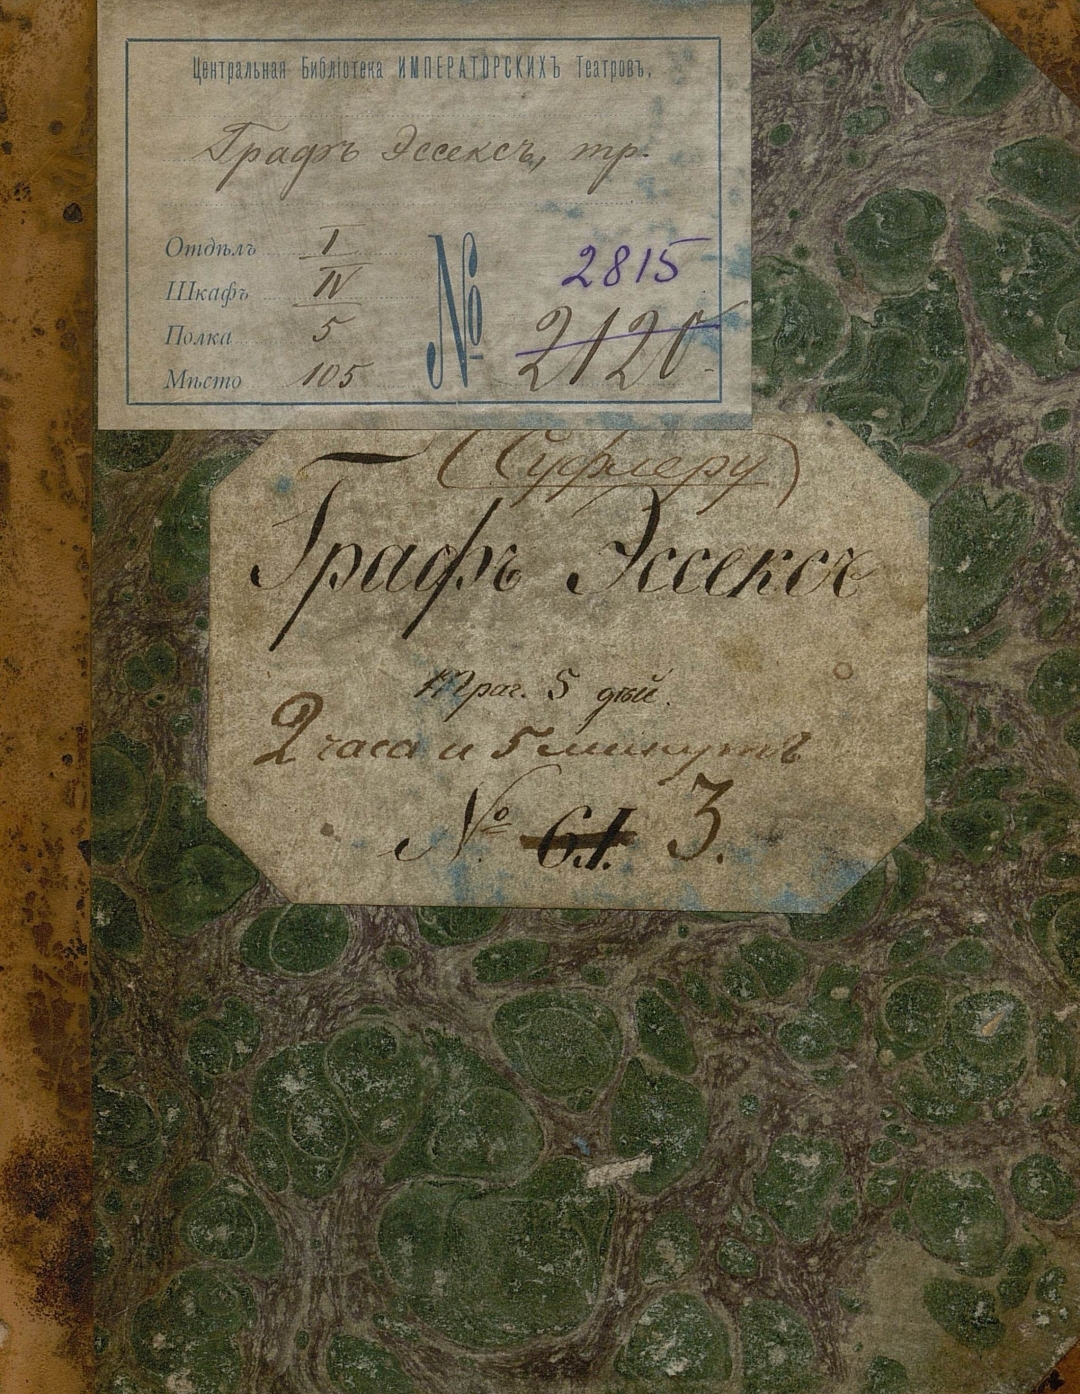 Центральная Библіотека ИМПЕРАТОРСКИХЪ Театровъ,
Графъ Эссексъ, тр.
Отдѣлъ I
Шкафъ IV
Полка 5
Мѣсто 105
№ 2815
2120
(Суфлеру)
Графъ Эссексъ
Траг. 5 дѣй.
2 часа и 5 минутъ
№ 61. 3.